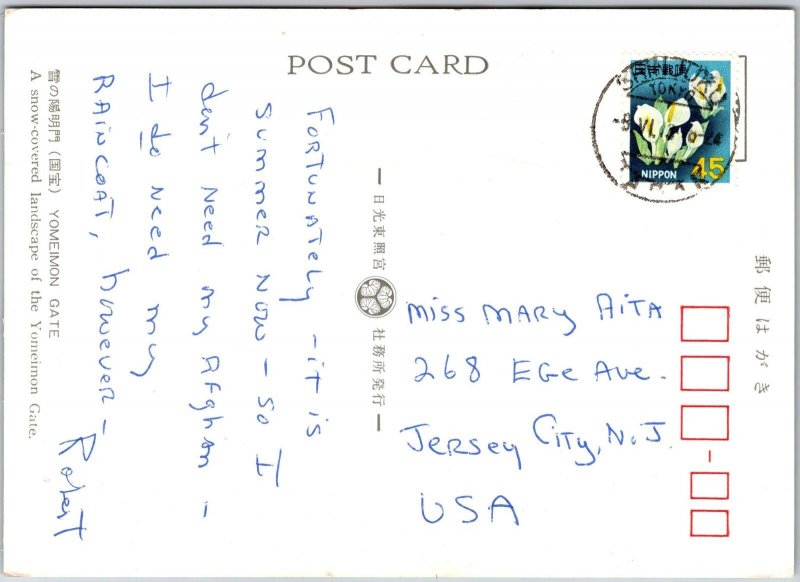 POST CARD
FORTUNATEly - it is
SUMMER NOW - SO I
don't NEEd my AFghAN -
I do NEEd my
RAINCOAT, however -
Robert
雪の陽明門（国宝） YOMEIMON GATE
A snow-covered landscape of the Yomeimon Gate.
日光東照宮
社務所発行
日本郵便
TOKYO
JAPAN
NIPPON
45
郵便はがき
MISS MARY AITA
268 EGE AVE.
JERSEY CITY, N.J.
USA